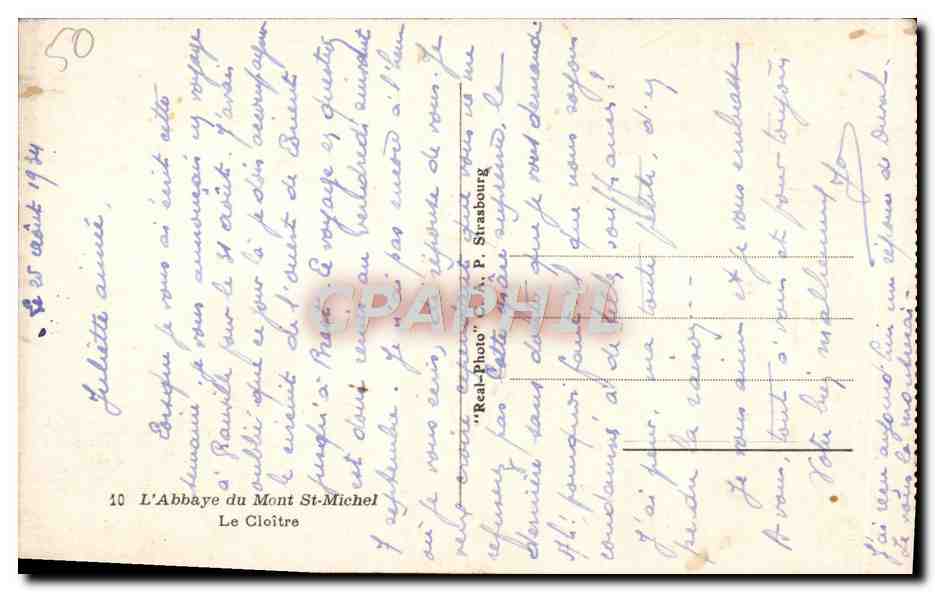 50
Le 25 août 1934
Juliette aimée,
Lorsque je vous ai écrit cette
semaine je vous annonçais un voyage
à pour le 31 août. J'avais
oublié que ce jour là je dois accompagner
le circuit de l'ouest de Lorient
jusqu'à Brest. Le voyage en question
est donc remis au vendredi suivant
7 septembre. Je n'ai pas encore à l'heure
où je vous écris, réponse de vous. Je
veux croire cependant que vous ne me
refuserez pas cette suprême, la
dernière sans doute que je vous demande
Ah! pourquoi faut-il que nous soyons
condamnés à de telles souffrances!
J'ai peur, ma toute petite, d'y
perdre la raison...
Je vous aime et je vous embrasse
A vous, tout à vous et pour toujours
Votre bien malheureux
J'ai reçu aujourd'hui une réponse de
Je vous la montrerai.
10 L'Abbaye du Mont St-Michel
Le Cloître
"Real-Photo" C. A. P. Strasbourg
CPAPHIL